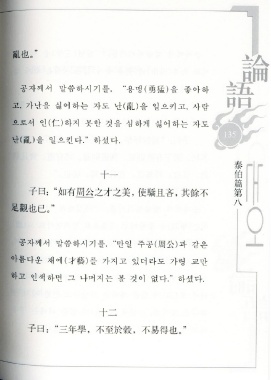 亂也。”
공자께서 말씀하시기를, “용맹(勇猛)을 좋아하
고, 가난을 싫어하는 자도 난(亂)을 일으키고, 사람
으로서 인(仁)하지 못한 것을 심하게 싫어하는 자도
난(亂)을 일으킨다.” 하셨다.
十一
子曰: “如有周公之才之美, 使驕且吝, 其餘不
足觀也已.”
공자께서 말씀하시기를, “만일 주공(周公)과 같은
아름다운 재예(才藝)를 가지고 있더라도 가령 교만
하고 인색하면 그 나머지는 볼 것이 없다.” 하셨다.
十二
子曰: “三年學, 不至於穀, 不易得也.”
論語
135
泰伯篇第八